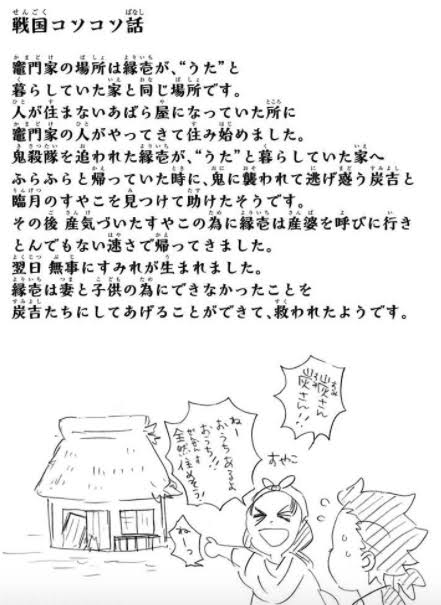 戦国コソコソ話
竈門家の場所は縁壱が、“うた”と
暮らしていた家と同じ場所です。
人が住まないあばら屋になっていた所に
竈門家の人がやってきて住み始めました。
鬼殺隊を追われた縁壱が、“うた”と暮らしていた家へ
ふらふらと帰っていた時に、鬼に襲われて逃げ惑う炭吉と
臨月のすやこを見つけて助けたそうです。
その後 産気づいたすやこの為に縁壱は産婆を呼びに行き
とんでもない速さで帰ってきました。
翌日 無事にすみれが生まれました。
縁壱は妻と子供の為にできなかったことを
炭吉たちにしてあげることができて、救われたようです。
炭さん
炭さん!!
すやこ
ねー
おうちあるよ
おうち!!
全然住めそう!
ねーっ